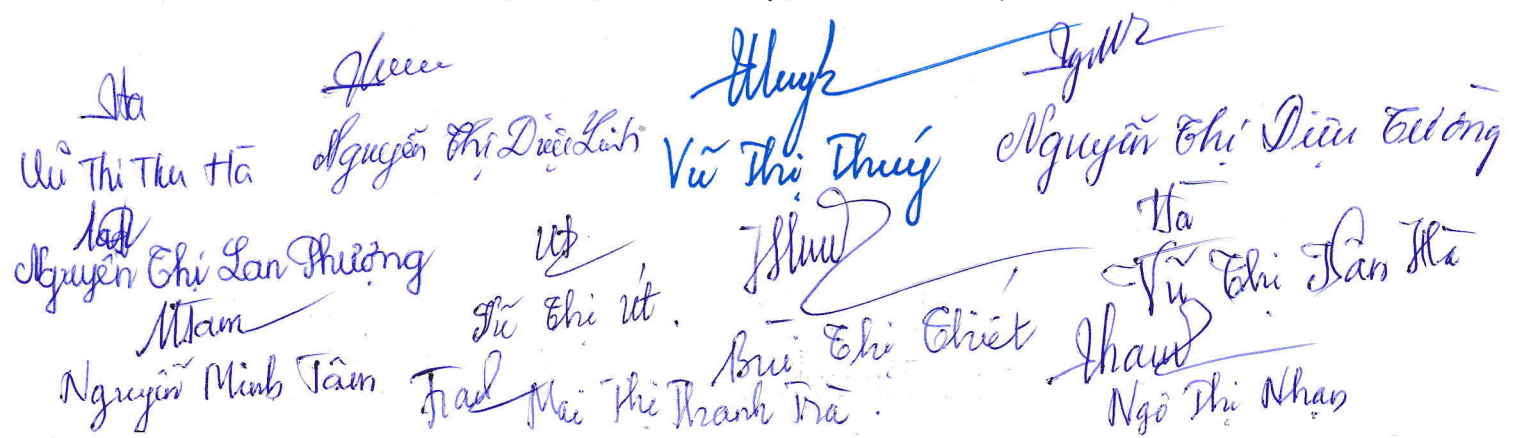 Hà
Vũ Thị Thu Hà
Nguyễn Thị Diệu Linh
Vũ Thị Thuý
Nguyễn Thị Diệu Tường
Nguyễn Thị Lan Phượng
Út
Vũ Thị Út.
Bùi Thị Thiết
Hà
Vũ Thị Vân Hà
MTâm
Nguyễn Minh Tâm
Trà
Mai Thị Thanh Trà.
Nhạn
Ngô Thị Nhạn